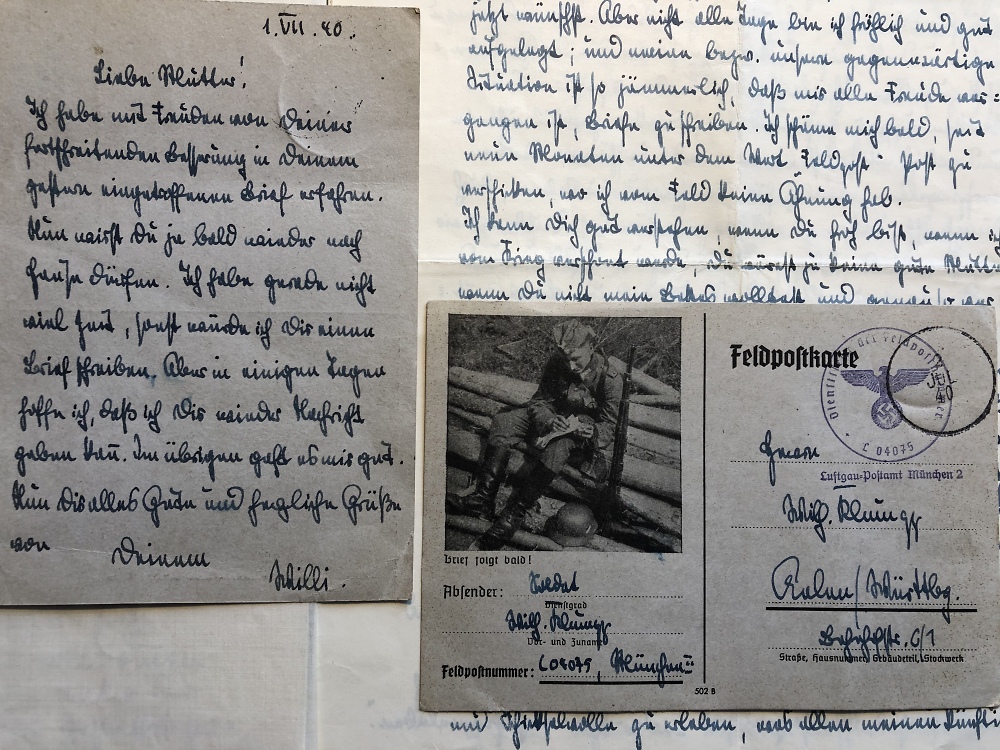 1.VII.40.
Liebe Mutter!
Ich habe mit Freuden von Deiner
fortschreitenden Besserung in Deinem
gestern eingetroffenen Brief erfahren.
Nun wirst Du ja bald wieder nach
Hause dürfen. Ich habe gerade nicht
viel Zeit, sonst würde ich Dir einen
Brief schreiben. Aber in einigen Tagen
hoffe ich, daß ich Dir wieder Nachricht
geben kann. Im übrigen geht es mir gut.
Nun Dir alles Gute und herzliche Grüße
von Deinem
Willi.
jetzt wünschst. Aber nicht alle Tage bin ich fröhlich und gut
aufgelegt; und meine bezw. unsere gegenwärtige
Situation ist so jämmerlich, daß mir alle Freude ver-
gangen ist, Briefe zu schreiben. Ich schäme mich bald, seit
neun Monaten unter dem Wort Feldpost Post zu
verschicken, wo ich vom Feld keine Ahnung hab.
Ich kann Dich gut verstehen, wenn Du froh bist, wenn ich
vom Krieg verschont werde, Du wärest ja keine gute Mutter
wenn Du nicht mein Bestes wolltest und genau so
Brief folgt bald!
Absender: Soldat
Dienstgrad
Wilh. Klumpp
Vor- und Zuname
Feldpostnummer: L04075, München 2
502 B
Feldpostkarte
der Feldpost
L 04075
JUL
40
Luftgau-Postamt München 2
Herrn
Wilh. Klumpp
Aalen/Württbg.
Bahnhofstr. 6/1
Straße, Hausnummer, Gebäudeteil, Stockwerk
und Schicksalvolle zu erleben, was allen meinen